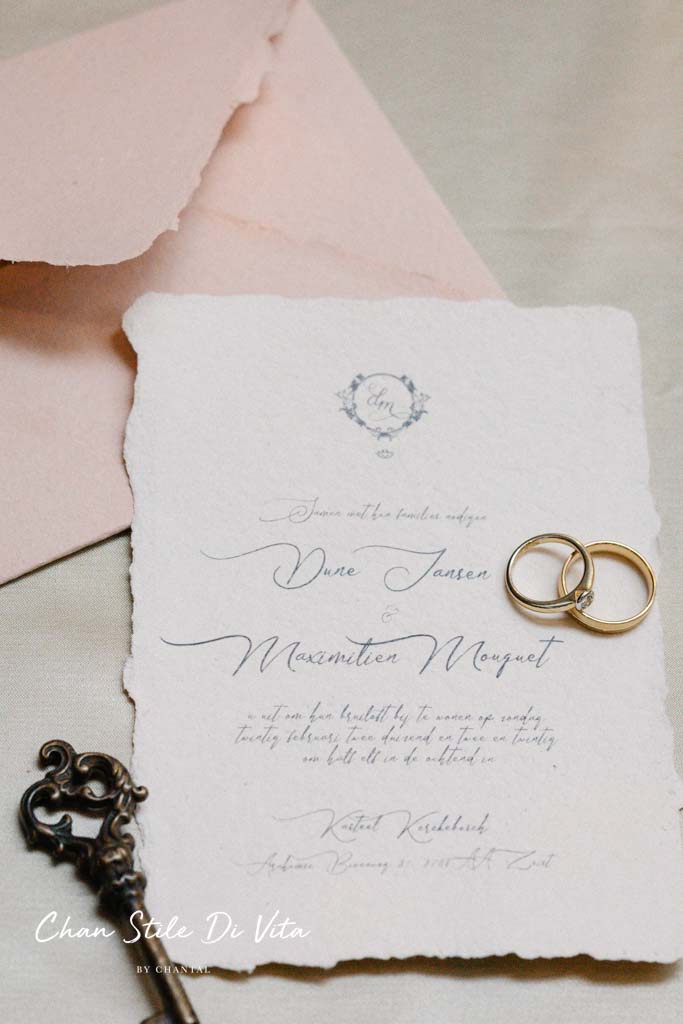 dm
Samen met hun families nodigen
Dune Jansen
&
Maximilien Mouquet
u uit om hun bruiloft bij te wonen op zondag,
twintig februari twee duizend en twee en twintig
om half elf in de ochtend in
Kasteel Kerckebosch
Arnhemse Bovenweg 31, 3708 AA Zeist
Chan Stile Di Vita
BY CHANTAL